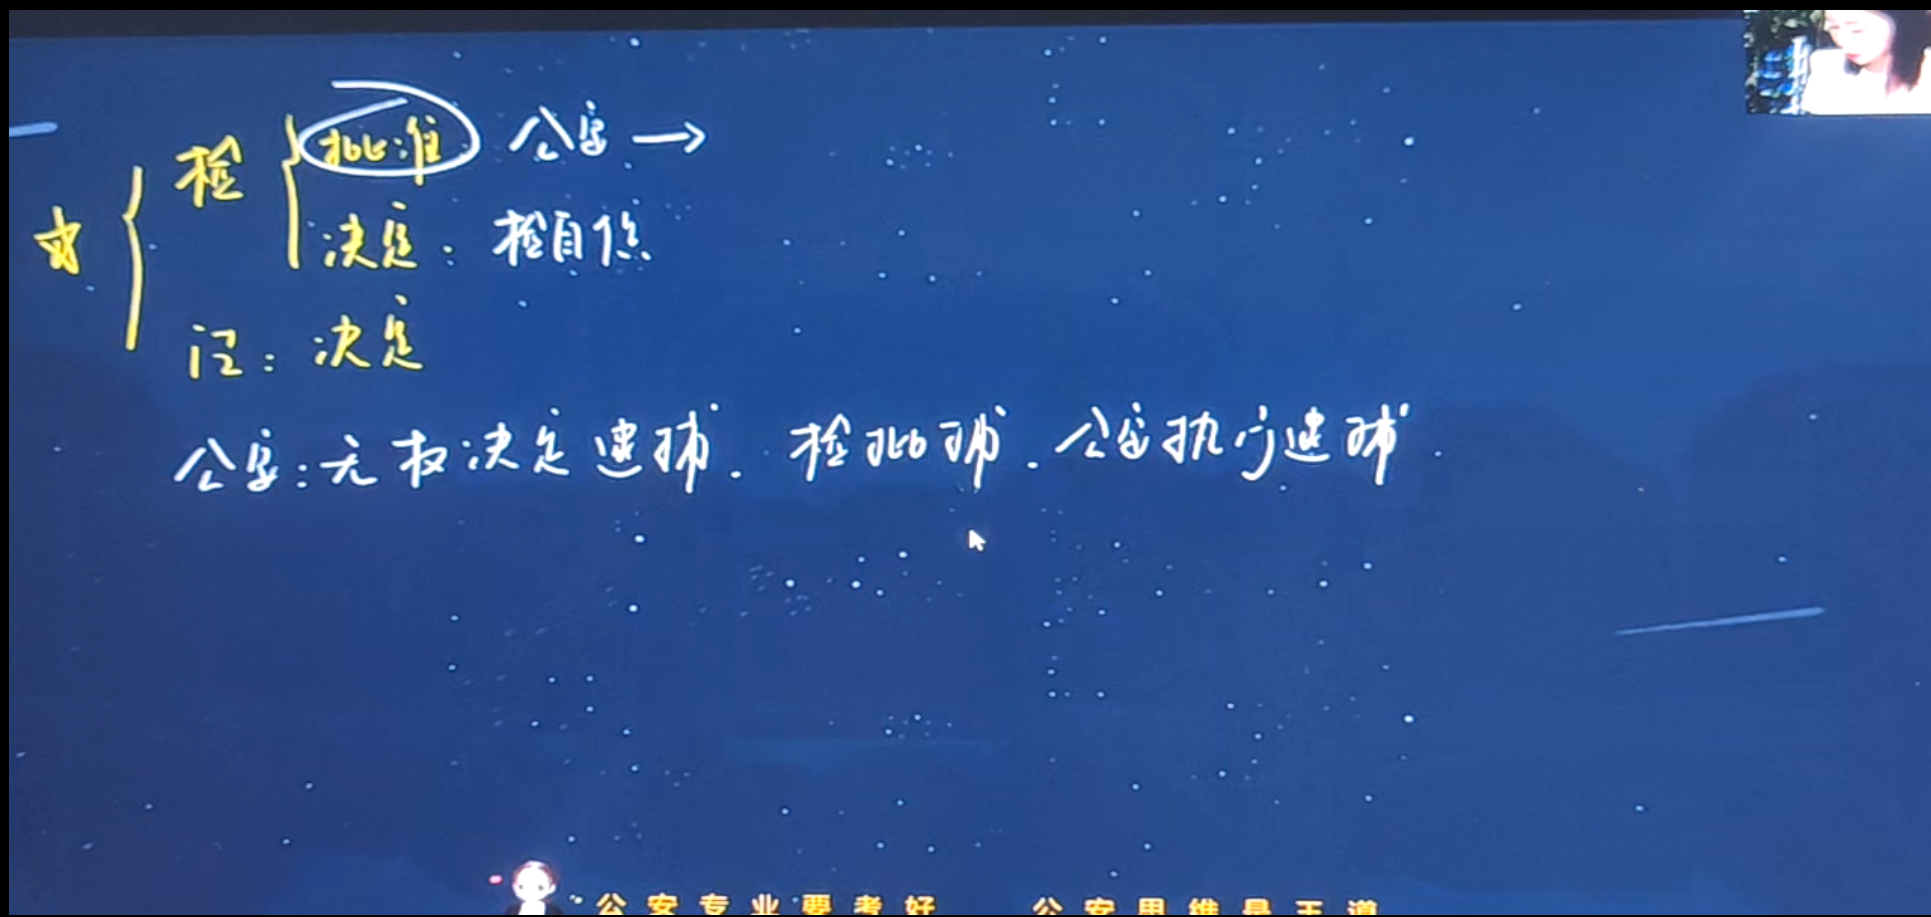 检 批准 公安 →
决定：检自侦
法：决定
公安：无权决定逮捕．检批捕．公安执行逮捕．
公安专业要考好 公安思维是王道